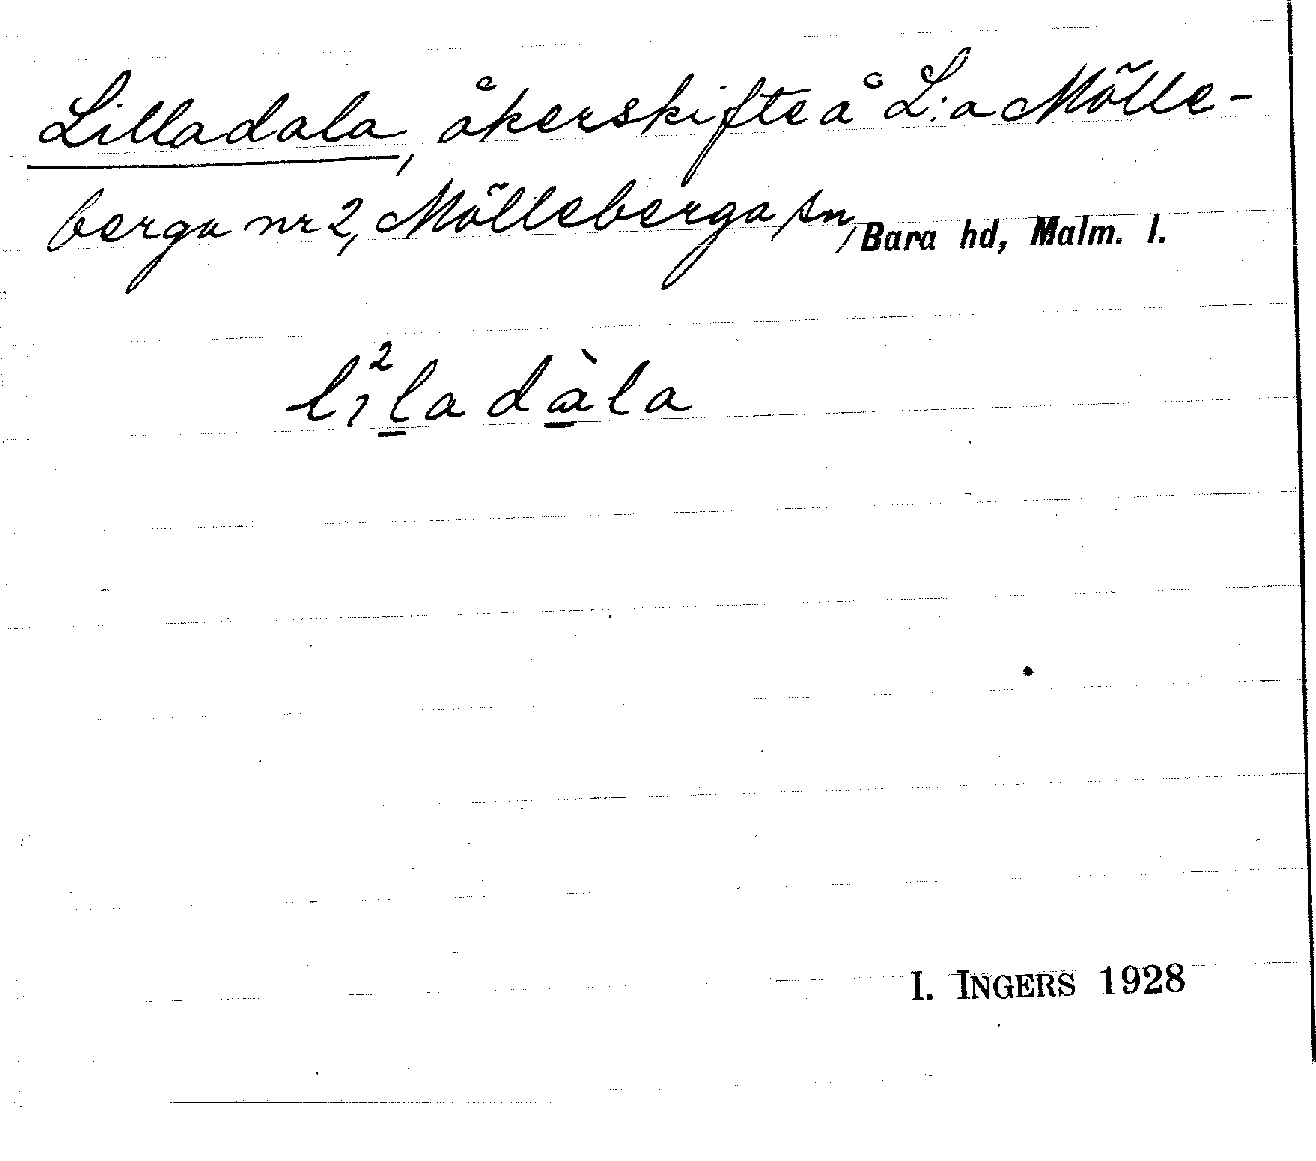 Lilladala, åkerskifte å L:a Mölle-
berga nr 2, Mölleberga sn, Bara hd, Malm. l.
lı²la dàla
I. INGERS 1928